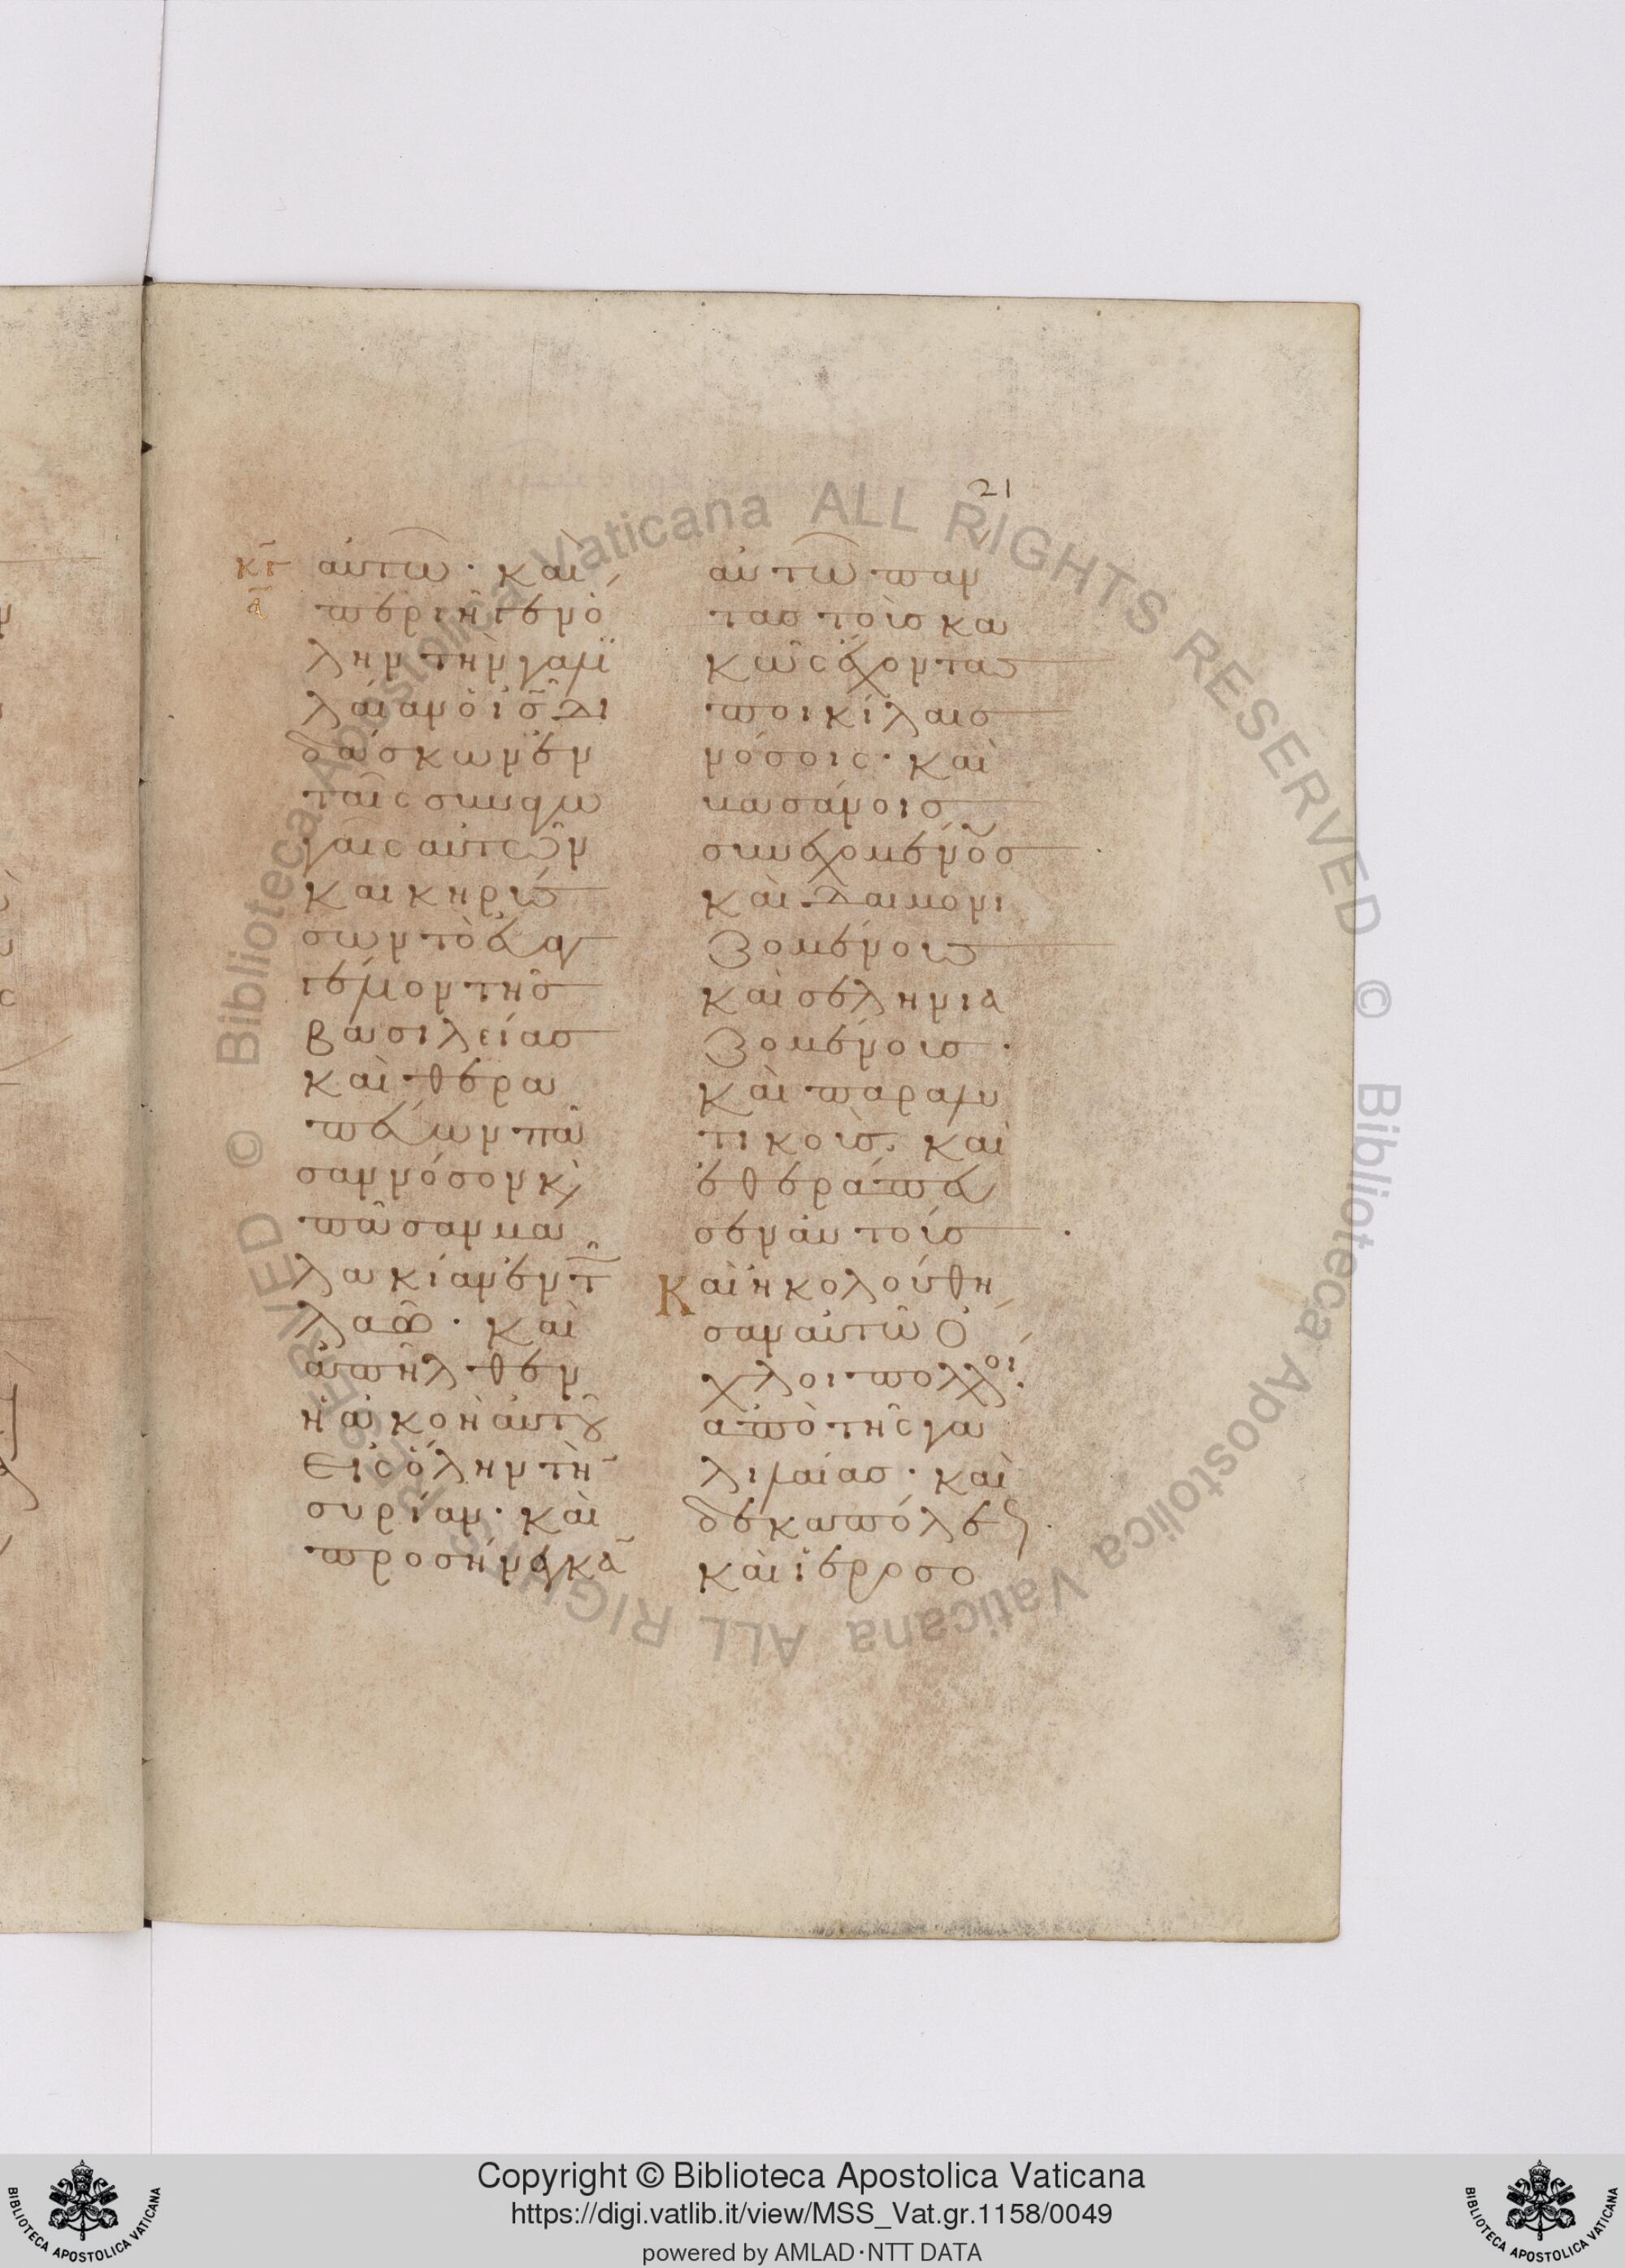 21
κγ̃
ᾱ
αὐτῶ· καὶ
περιῆγεν ὁ
λην τὴν γαλι
λαίαν ὁ ῑς̄ δι
δάσκων ἐν
ταῖς συναγω
γαῖς αὐτῶν
καὶ κηρύσ
σων τὸ εὐαγ
γέλιον τῆς
βασιλείας
καὶ θερα
πεύων πᾶ
σαν νόσον κ(αὶ)
πᾶσαν μα
λακίαν ἐν τ(ῶ)
λαῶ· καὶ
ἀπῆλθεν
ἡ ἀκοὴ αὐτοῦ
εἰς ὅλην τὴ(ν)
συρίαν· καὶ
προσήνεγκα(ν)
αὐτῶ παν
τας τοὺς κα
κῶς ἔχοντας
ποικίλαις
νόσοις· καὶ
βασάνοις
συνεχομένους
καὶ δαιμονι
ζομένους
καὶ σεληνια
ζομένους·
καὶ παραλυ
τικούς· καὶ
ἐθεράπευ
σεν αὐτούς·
Καὶ ἠκολούθη
σαν αὐτῶ ὄ
χλοι πολλοὶ
ἀπὸ τῆς γα
λιλαίας· καὶ
δεκαπόλεως·
καὶ ἱεροσο
© Biblioteca Apostolica Vaticana ALL RIGHTS RESERVED © Biblioteca Apostolica Vaticana ALL RIGHTS RESERVED
Copyright © Biblioteca Apostolica Vaticana
https://digi.vatlib.it/view/MSS_Vat.gr.1158/0049
powered by AMLAD·NTT DATA
BIBLIOTECA APOSTOLICA VATICANA
BIBLIOTECA APOSTOLICA VATICANA